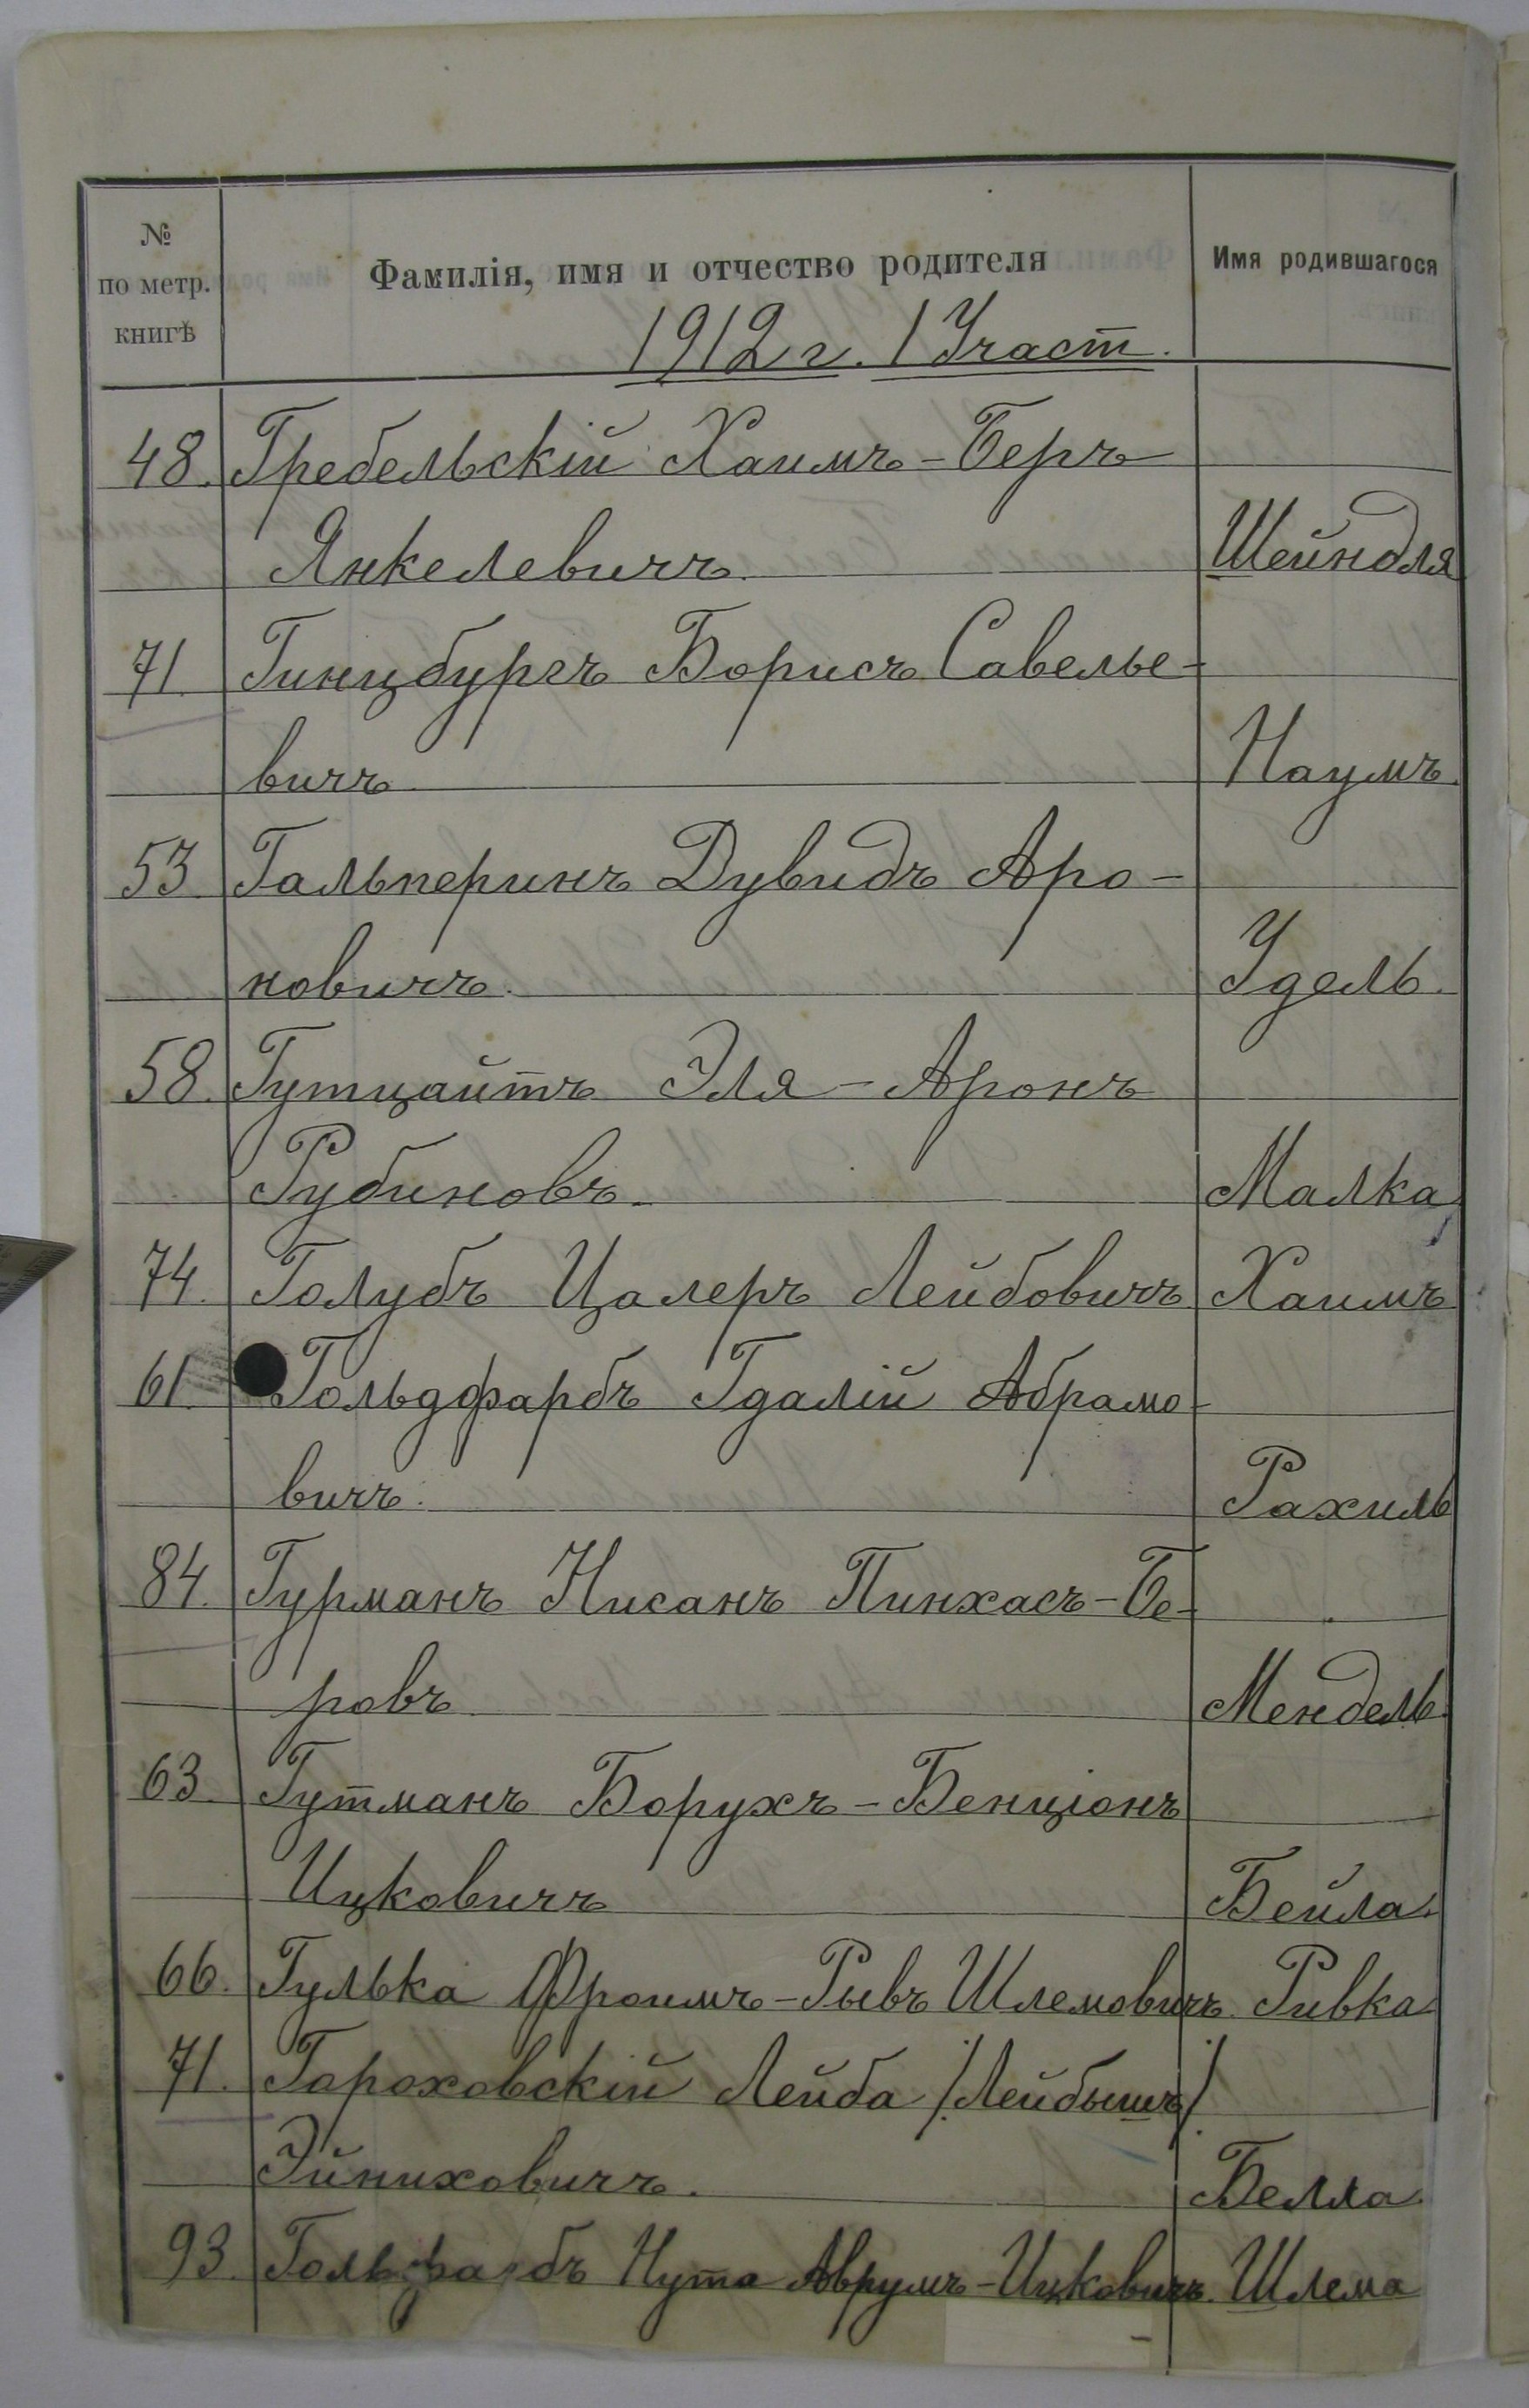 № по метр. книгѣ Фамилія, имя и отчество родителя Имя родившагося
1912 г. 1 Участ.
48. Гребельскій Хаимъ-Беръ
Янкелевичъ. Шейндля
71. Гинцбургъ Борисъ Савелье-
вичъ Наумъ.
53 Гальперинъ Дувидъ Аро-
новичъ. Удель.
58. Гутцайтъ Эля-Аронъ
Рубиновъ. Малка
74. Голубъ Цалеръ Лейбовичъ Хаимъ
61. Гольдфарбъ Гдалій Абрамо-
вичъ. Рахиль
84. Гурманъ Нисанъ Пинхасъ-Бе-
ровъ Мендель
63. Гутманъ Борухъ-Бенціонъ
Ицковичъ Бейла.
66. Гулька Фроимъ-Рывъ Шлемовичъ Ривка
71. Гороховскій Лейба /Лейбышъ/
Эйниховичъ. Белла
93. Нута Аврумъ-Ицковичъ. Шлема